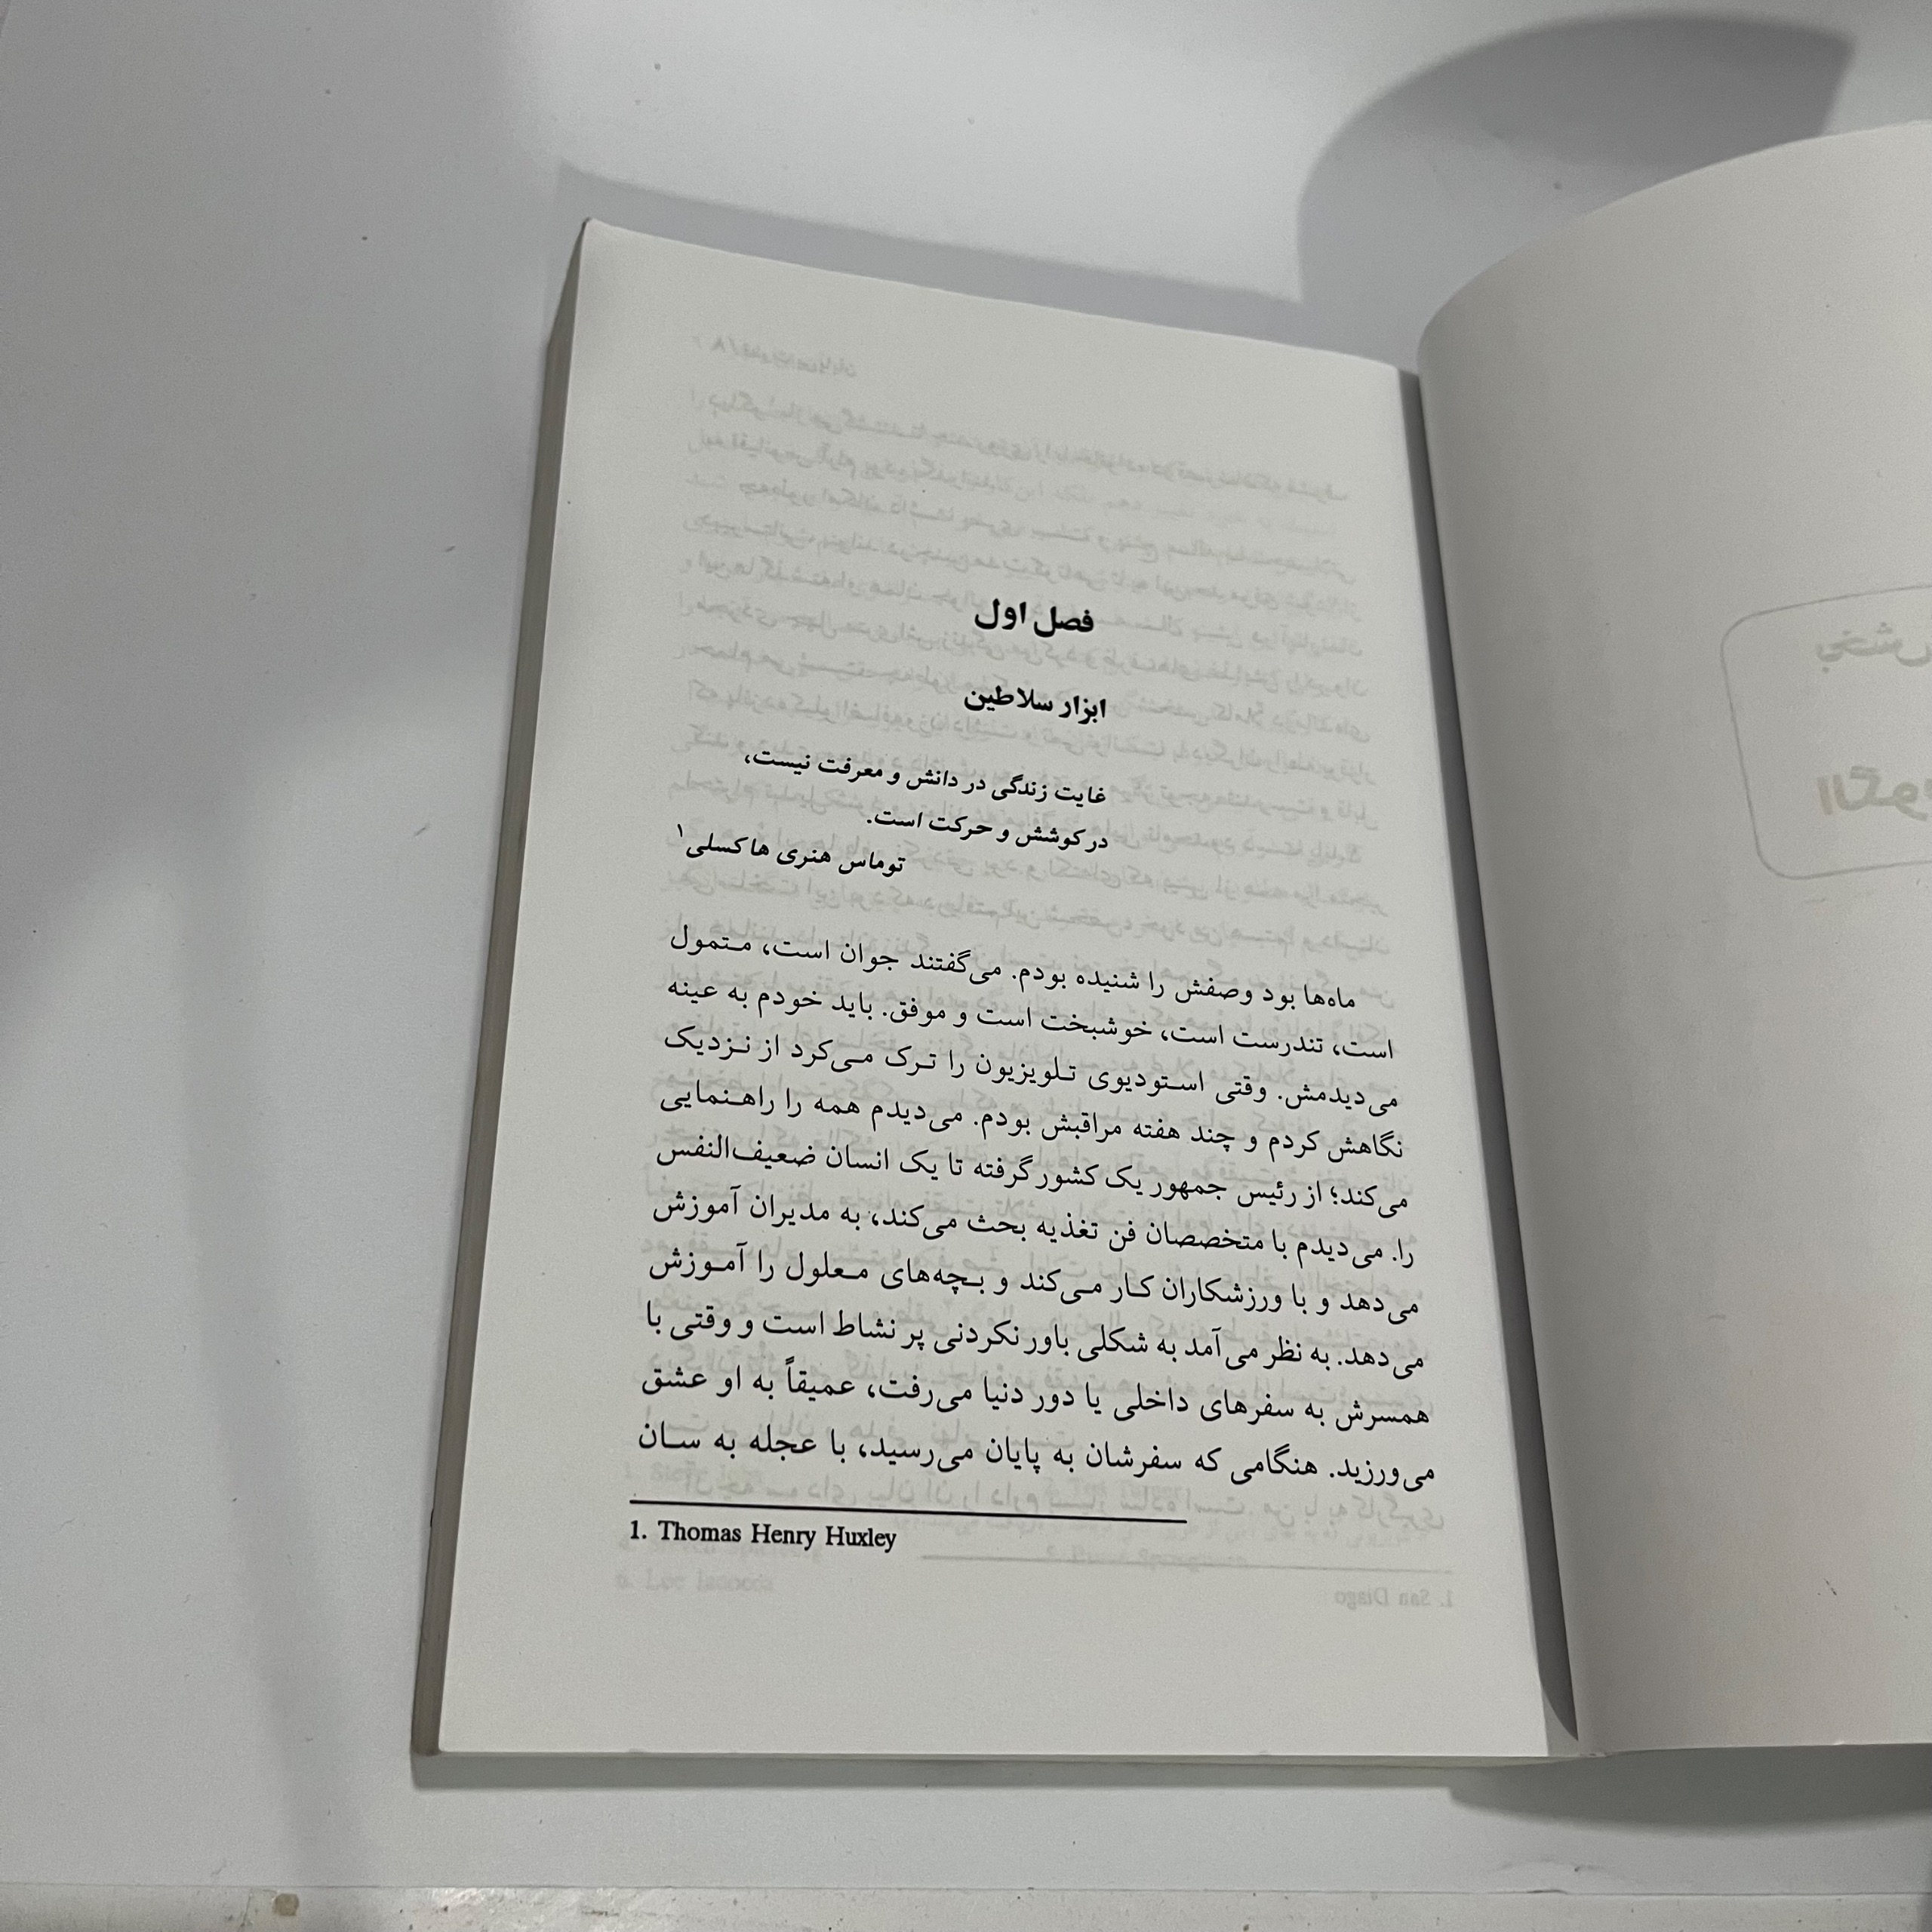 فصل اول
ابزار سلاطین
غایت زندگی در دانش و معرفت نیست،
در کوشش و حرکت است.
توماس هنری هاکسلی۱
ماه‌ها بود وصفش را شنیده بودم. می‌گفتند جوان است، متمول
است، تندرست است، خوشبخت است و موفق. باید خودم به عینه
می‌دیدمش. وقتی استودیوی تلویزیون را ترک می‌کرد از نزدیک
نگاهش کردم و چند هفته مراقبش بودم. می‌دیدم همه را راهنمایی
می‌کند؛ از رئیس جمهور یک کشور گرفته تا یک انسان ضعیف‌النفس
را. می‌دیدم با متخصصان فن تغذیه بحث می‌کند، به مدیران آموزش
می‌دهد و با ورزشکاران کار می‌کند و بچه‌های معلول را آموزش
می‌دهد. به نظر می‌آمد به شکلی باور نکردنی پر نشاط است و وقتی با
همسرش به سفرهای داخلی یا دور دنیا می‌رفت، عمیقاً به او عشق
می‌ورزید. هنگامی که سفرشان به پایان می‌رسید، با عجله به سان
1. Thomas Henry Huxley